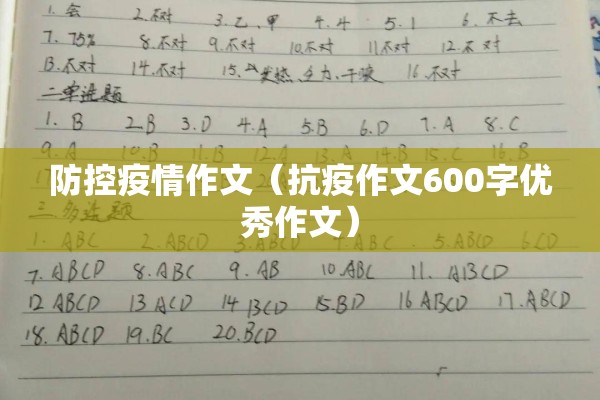 1.会 2.不对 3.乙、甲 4.4 5.1 6.不去
7.75% 8.不对 9.不对 10.不对 11.不对 12.不对
13.不对 14.不对 15.发热、乏力、干咳 16.不对
二单选题
1.B 2.B 3.D 4.A 5.B 6.D 7.A 8.C
9.A 10.B 11.B 12.A 13.A 14.B 15.C 16.B
防控疫情作文（抗疫作文600字优
秀作文）
三多选题
1.ABC 2.ABCD 3.ABCD 4.ABC 5.ABCD 6.CD
7.ABCD 8.ABC 9.AB 10.ABC 11.ABCD
12 ABCD 13 ACD 14 BCD 15.BD 16 ABCD 17.ABCD
18.ABCD 19.BC 20.BCD